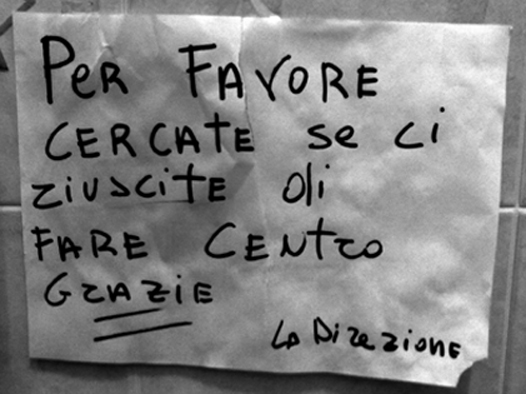 PER FAVORE
CERCATE se ci
riuscite di
FARE CENTRO
GRAZIE
La Direzione